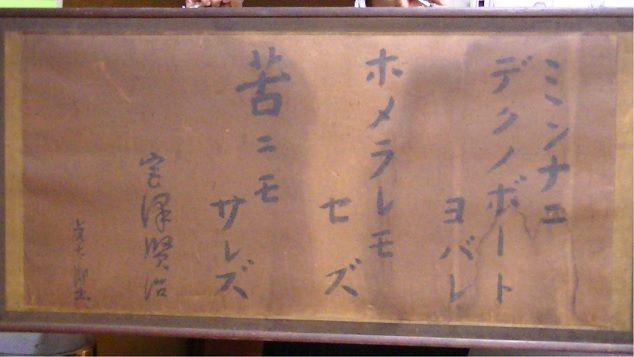 ミンナエ
デクノボート
ヨバレ
ホメラレモ
セズ
苦ニモ
サレズ
宮澤賢治